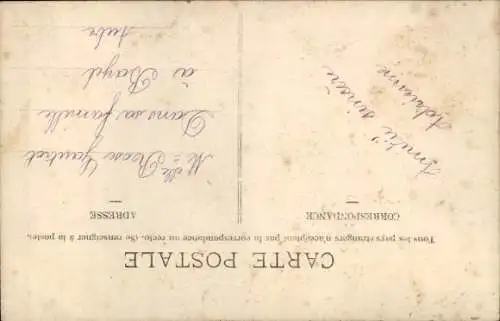 CARTE POSTALE
Tous les pays étrangers n'acceptent pas la correspondance au recto. (Se renseigner à la poste).
CORRESPONDANCE
Amitié sincère
ADRESSE
Melle Rose Gautrot
Dans sa famille
à Bayel
Aube